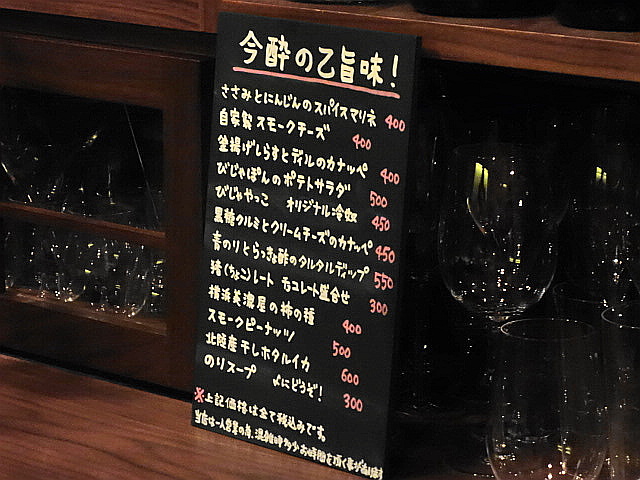 今酔の乙旨味!
ささみとにんじんのスパイスマリネ 400
自家製スモークチーズ 400
釜揚げしらすとディルのカナッペ 400
びじゃぽんのポテトサラダ 500
びじゃやっこ オリジナル冷奴 450
黒糖クルミとクリームチーズのカナッペ 450
青のりとらっきょ酢のタルタルディップ 550
猪(ちょこ)レート チョコレート盛合せ 300
横浜美濃屋の柿の種 400
スモークピーナッツ 500
北陸産干しホタルイカ 600
のりスープ 〆にどうぞ! 300
※上記価格は全て税込みです。
当店は一人営業の為、混雑時多少お時間を頂く事が有ります